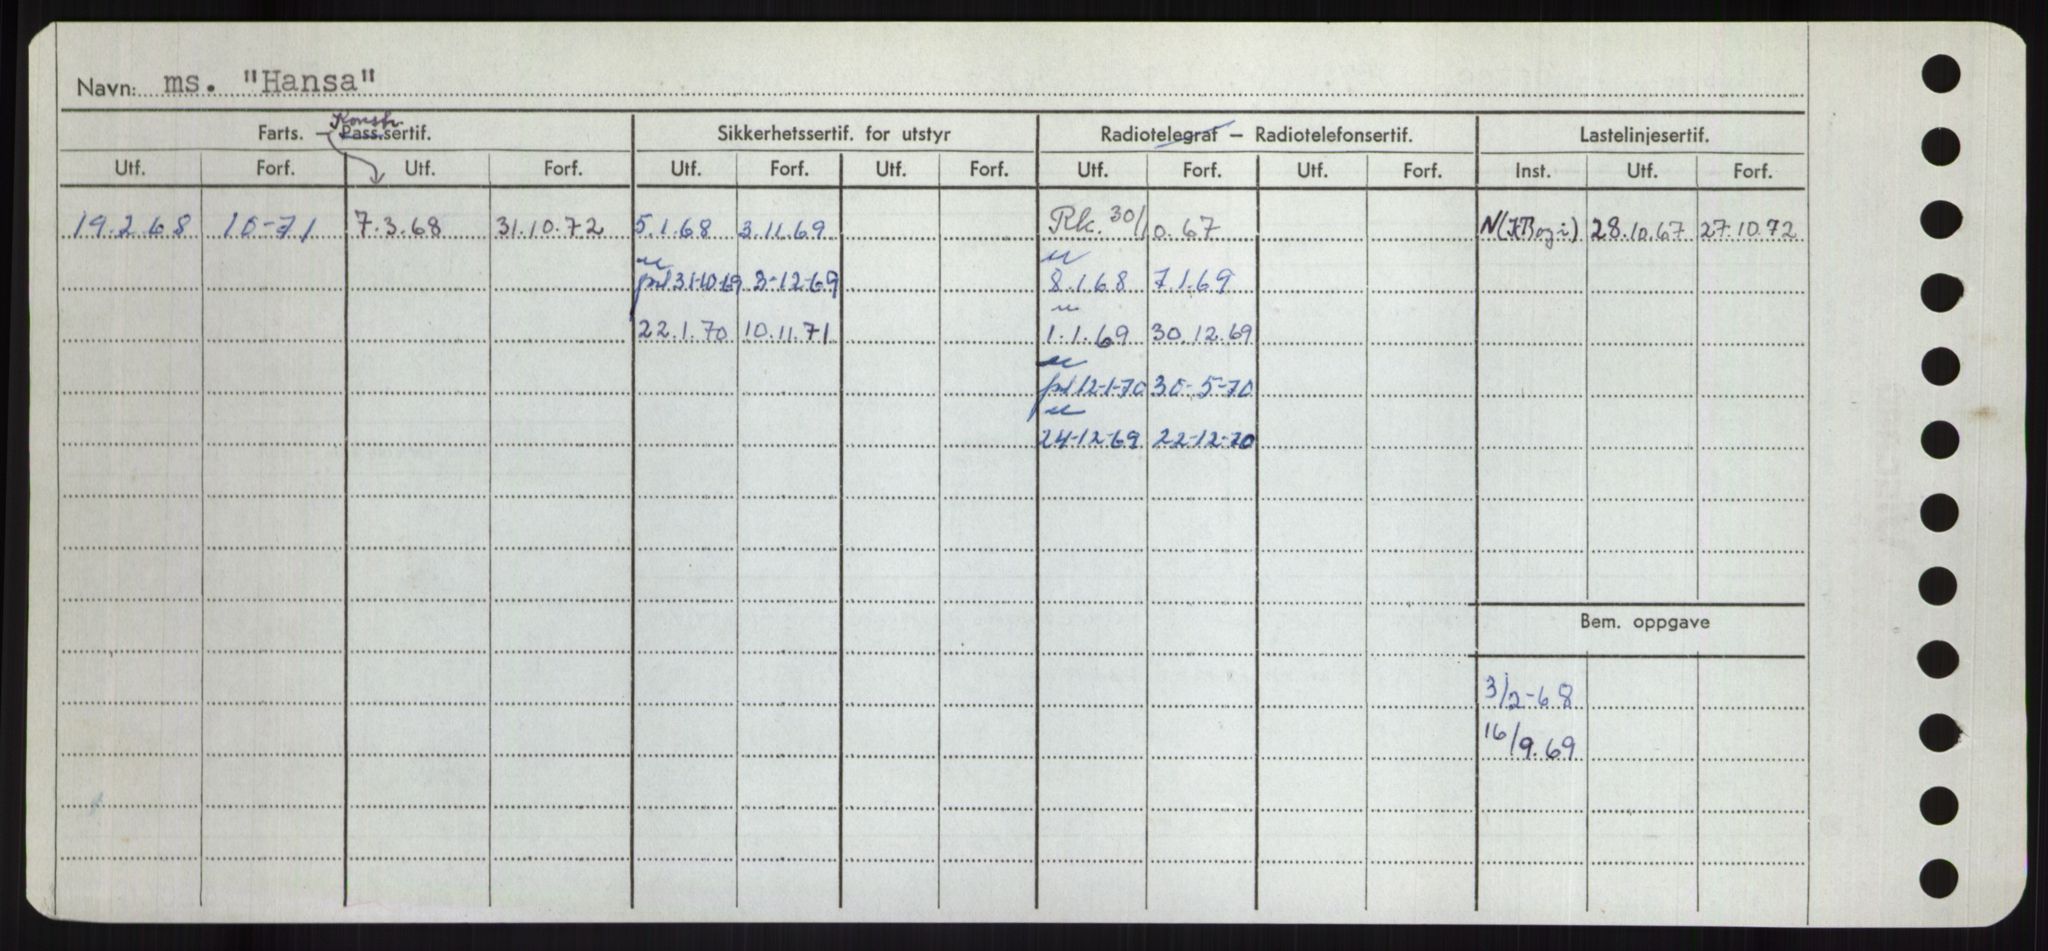 Navn: ms. "Hansa"
Konstr.
Farts. — Pass.sertif. Sikkerhetssertif. for utstyr Radiotelegraf — Radiotelefonsertif. Lastelinjesertif.
Utf. Forf. Utf. Forf. Utf. Forf. Utf. Forf. Utf. Forf. Utf. Forf. Inst. Utf. Forf.
19.2.68 10-71 7.3.68 31.10.72 5.1.68 3.11.69 Rk. 30/10.67 28.10.67 27.10.72
31-10-69 3-12-69 8.1.68 7.1.69
22.1.70 10.11.71 1.1.69 30.12.69
12-1-70 30-5-70
24-12-69 22-12-70
Bem. oppgave
3/2-68
16/9.69